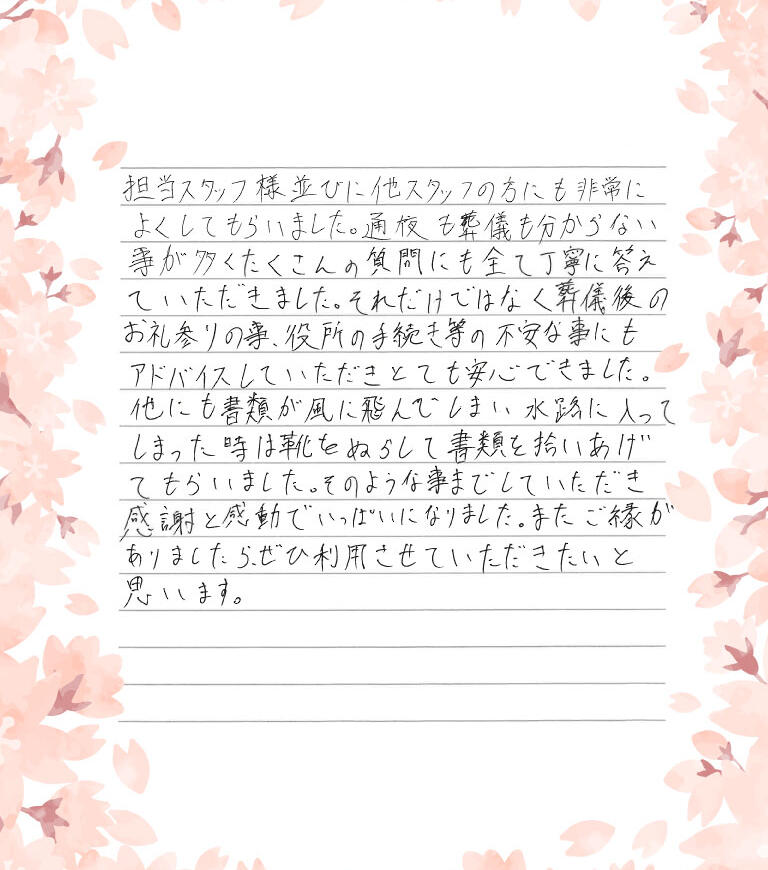 担当スタッフ様並びに他スタッフの方にも非常に
よくしてもらいました。通夜も葬儀も分からない
事が多くたくさんの質問にも全て丁寧に答え
ていただきました。それだけではなく葬儀後の
お礼参りの事、役所の手続き等の不安な事にも
アドバイスしていただきとても安心できました。
他にも書類が風に飛んでしまい水路に入って
しまった時は靴をぬらして書類を拾いあげ
てもらいました。そのような事までしていただき
感謝と感動でいっぱいになりました。またご縁が
ありましたら、ぜひ利用させていただきたいと
思います。